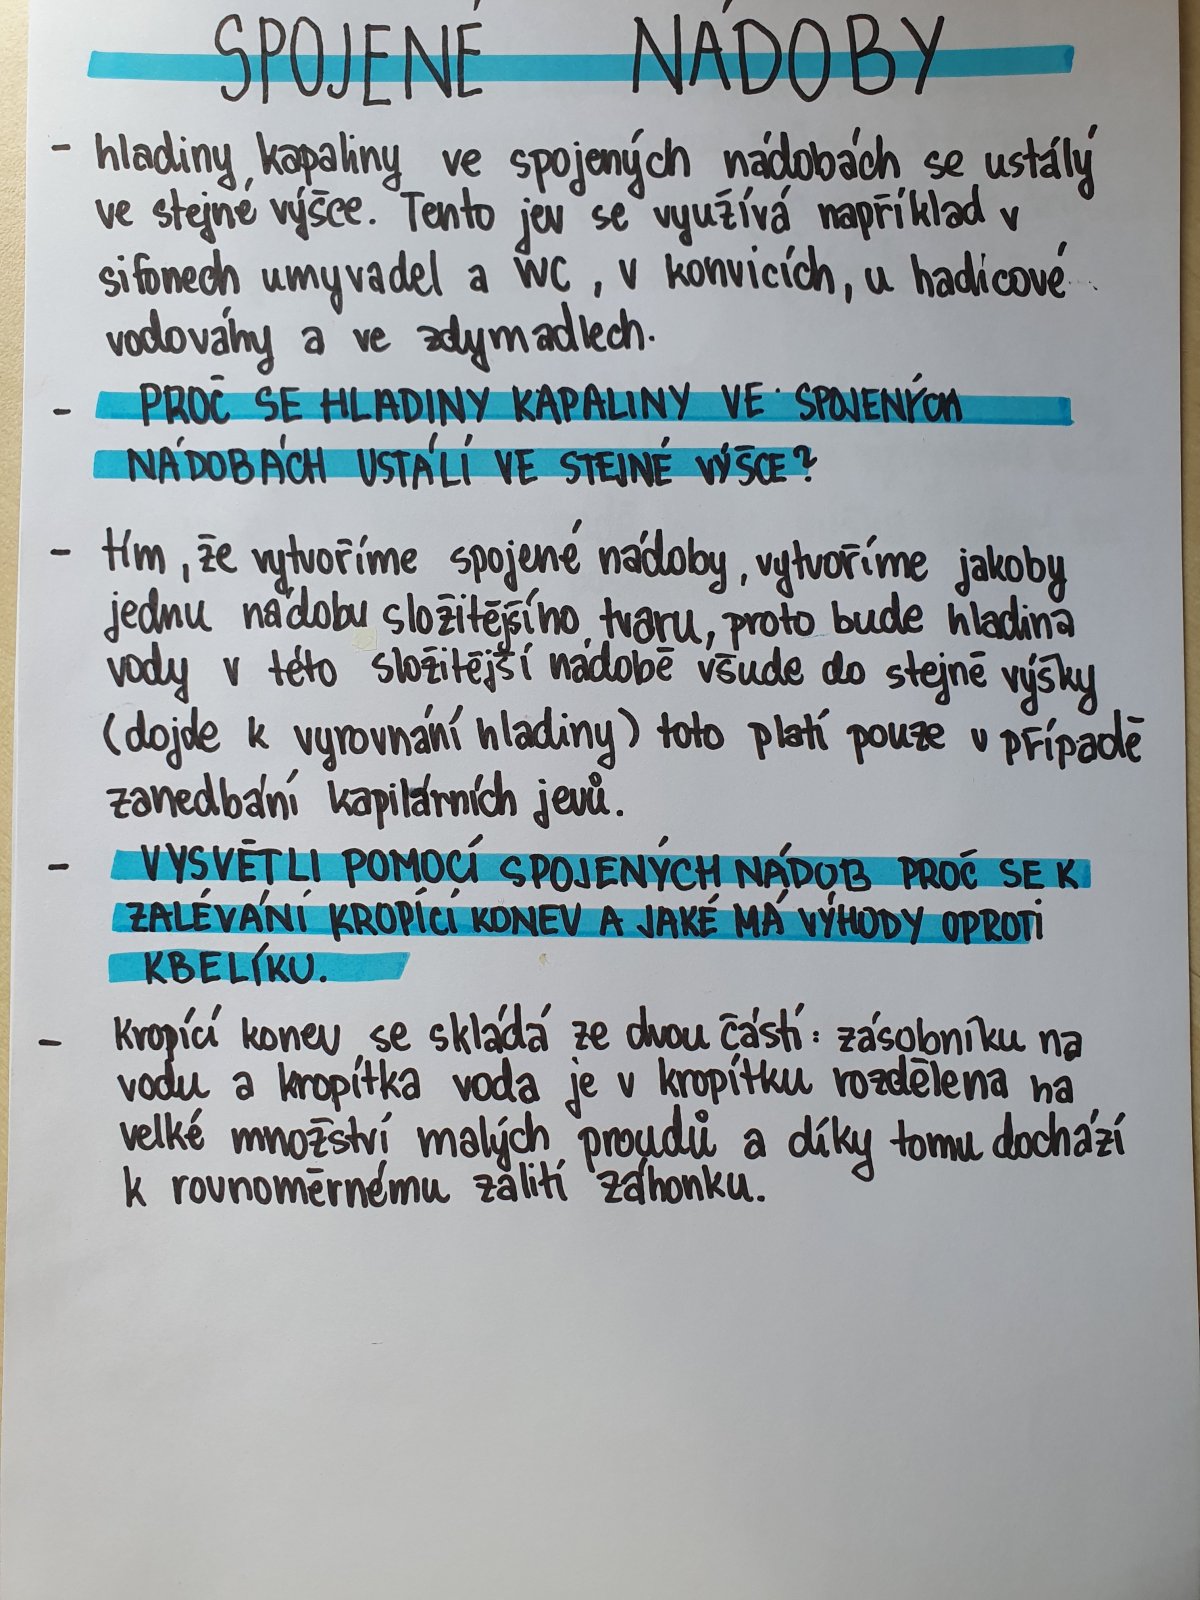 SPOJENÉ NÁDOBY
- hladiny kapaliny ve spojených nádobách se ustálý
ve stejné výšce. Tento jev se využívá například v
sifonech umyvadel a WC, v konvicích, u hadicové
vodováhy a ve zdymadlech.
- PROČ SE HLADINY KAPALINY VE SPOJENÝCH
NÁDOBÁCH USTÁLÍ VE STEJNÉ VÝŠCE?
- tím, že vytvoříme spojené nádoby, vytvoříme jakoby
jednu nádobu složitějšího tvaru, proto bude hladina
vody v této složitější nádobě všude do stejné výšky
(dojde k vyrovnání hladiny) toto platí pouze v případě
zanedbání kapilárních jevů.
- VYSVĚTLI POMOCÍ SPOJENÝCH NÁDOB PROČ SE K
ZALÉVÁNÍ KROPÍCÍ KONEV A JAKÉ MÁ VÝHODY OPROTI
KBELÍKU.
- Kropící konev se skládá ze dvou částí: zásobníku na
vodu a kropítka voda je v kropítku rozdělena na
velké množství malých proudů a díky tomu dochází
k rovnoměrnému zalití záhonku.